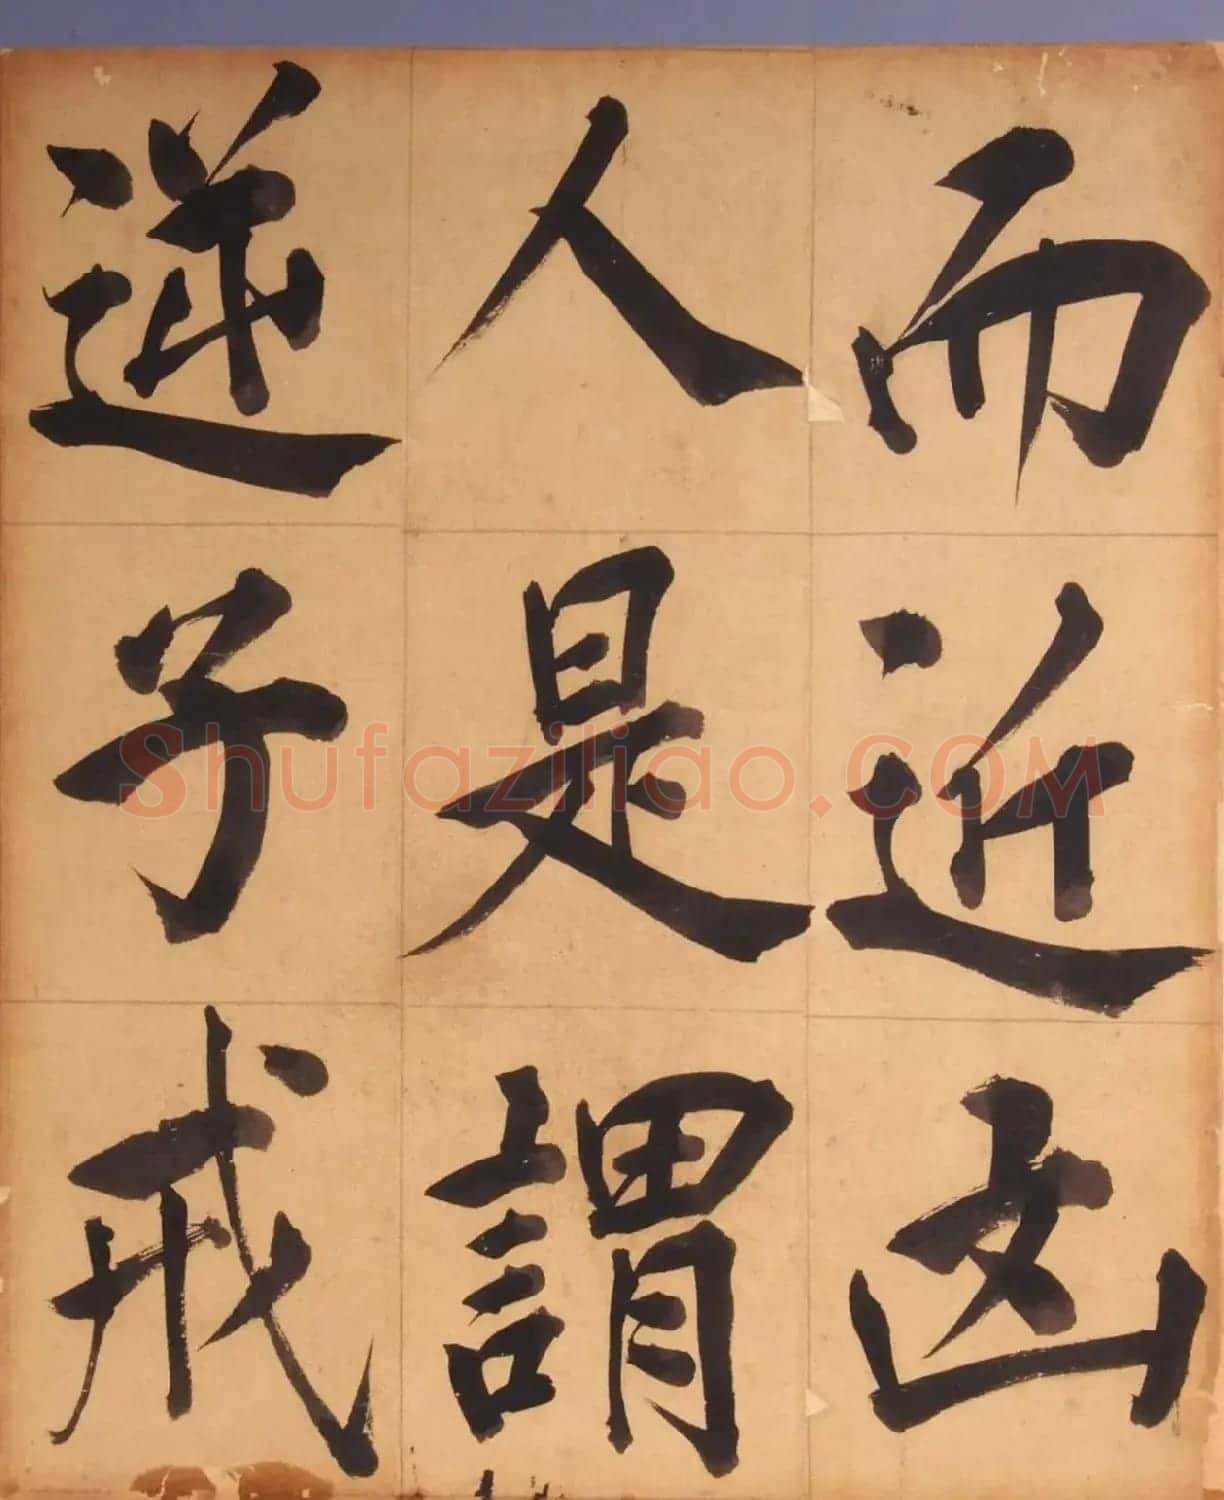 而近凶
人是謂
逆子戒
Shufaziliao.COM